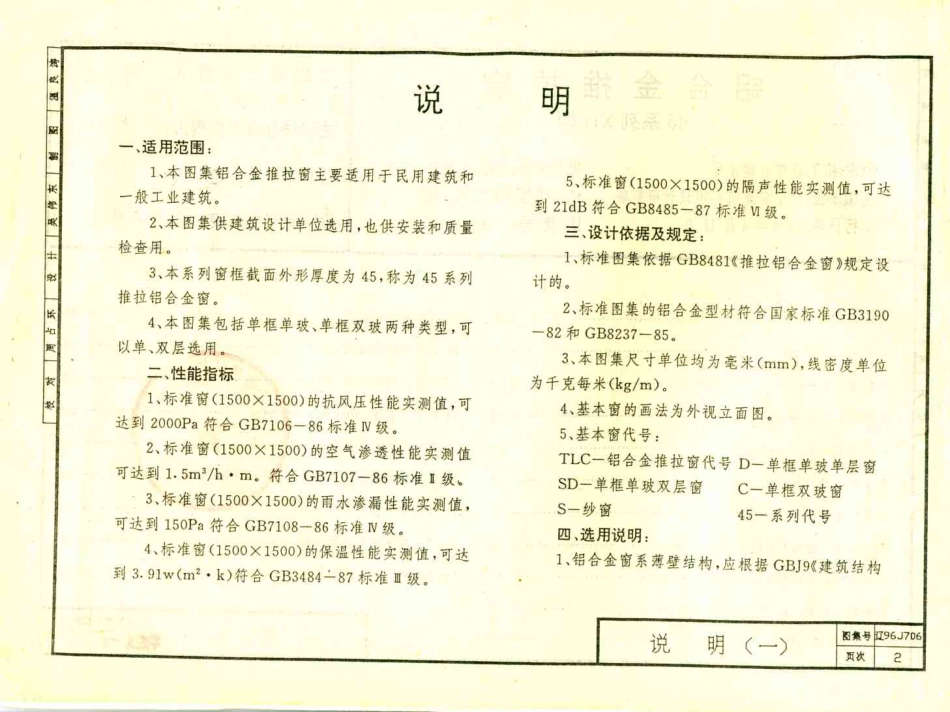 说 明
一、适用范围：
1、本图集铝合金推拉窗主要适用于民用建筑和
一般工业建筑。
2、本图集供建筑设计单位选用，也供安装和质量
检查用。
3、本系列窗框截面外形厚度为 45，称为 45 系列
推拉铝合金窗。
4、本图集包括单框单玻、单框双玻两种类型，可
以单、双层选用。
二、性能指标
1、标准窗(1500×1500)的抗风压性能实测值，可
达到 2000Pa 符合 GB7106—86 标准Ⅳ级。
2、标准窗(1500×1500)的空气渗透性能实测值
可达到 1.5m³/h·m。符合 GB7107—86 标准Ⅱ级、
3、标准窗(1500×1500)的雨水渗漏性能实测值，
可达到 150Pa 符合 GB7108—86 标准Ⅳ级。
4、标准窗(1500×1500)的保温性能实测值，可达
到 3.91w(m²·k)符合 GB3484—87 标准Ⅲ级。
5、标准窗(1500×1500)的隔声性能实测值，可达
到 21dB 符合 GB8485—87 标准Ⅵ级。
三、设计依据及规定：
1、标准图集依据 GB8481《推拉铝合金窗》规定设
计的。
2、标准图集的铝合金型材符合国家标准 GB3190
—82 和 GB8237—85。
3、本图集尺寸单位均为毫米(mm)，线密度单位
为千克每米(kg/m)。
4、基本窗的画法为外视立面图。
5、基本窗代号：
TLC—铝合金推拉窗代号 D—单框单玻单层窗
SD—单框单玻双层窗 C—单框双玻窗
S—纱窗 45—系列代号
四、选用说明：
1、铝合金窗系薄壁结构，应根据 GBJ9《建筑结构
说 明（一）
图集号 辽96J706
页次 2
制图
设计
校对